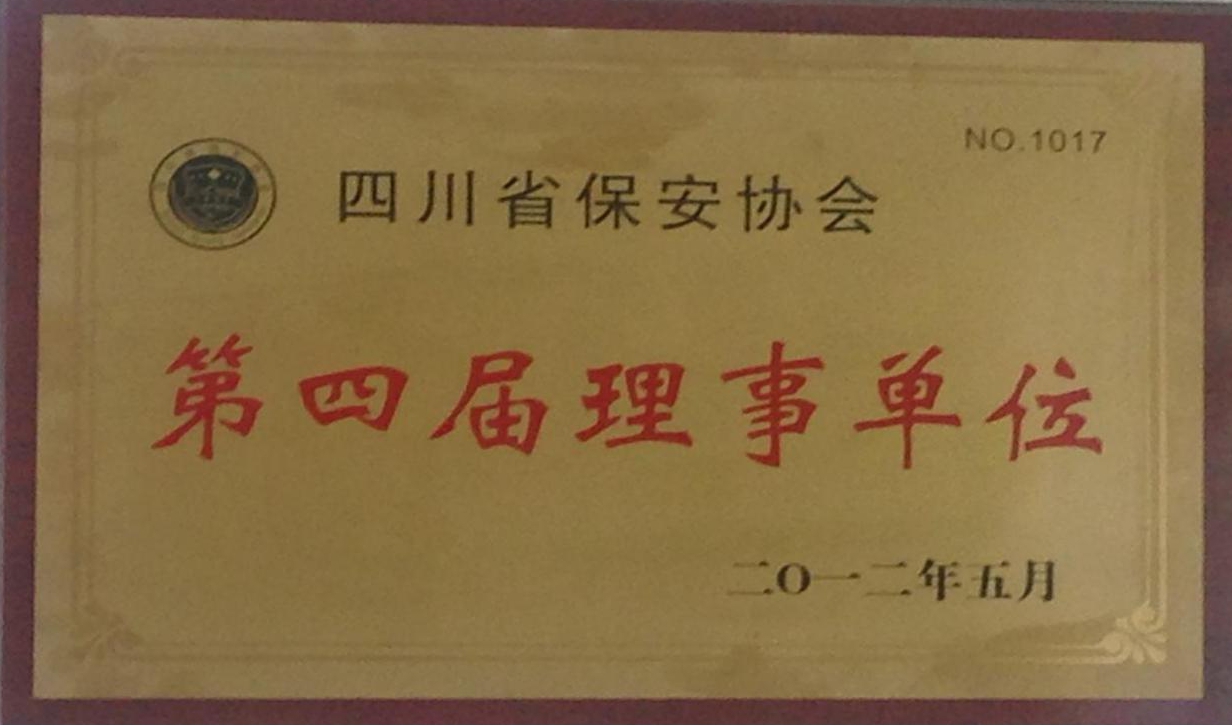 NO.1017
四川省保安协会
第四届理事单位
二O一二年五月